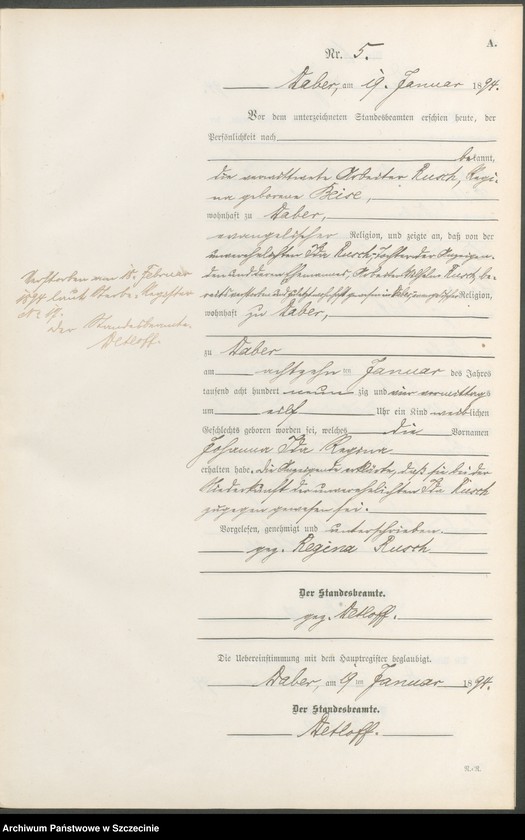 A.
Nr. 5.
Daber, am 19. Januar 1894.
Vor dem unterzeichneten Standesbeamten erschien heute, der
Persönlichkeit nach
bekannt,
die verwittwete Arbeiter Rusch, Regi-
na geborene Beise,
wohnhaft zu Daber,
evangelischer Religion, und zeigte an, daß von der
unverehelichten Ida Rusch, Tochter der Anzeigen-
den und deren Ehemannes, Arbeiter Wilhelm Rusch, be-
Religion,
wohnhaft zu Daber,
zu Daber
am achtzehn ten Januar des Jahres
tausend acht hundert neun zig und vier vormittags
um eilf Uhr ein Kind weiblichen
Geschlechts geboren worden sei, welches die Vornamen
Johanna Ida Regina
erhalten habe. Die Anzeigende erklärte, daß sie bei der
Niederkunft der unverehelichten Ida Rusch
zugegen gewesen sei.
Vorgelesen, genehmigt und unterschrieben.
gez. Regina Rusch
Der Standesbeamte.
gez. Detloff.
Die Uebereinstimmung mit dem Hauptregister beglaubigt.
Daber, am 19 ten Januar 1894.
Der Standesbeamte.
Detloff.
Verstorben am 18. Februar
1894 laut Sterbe-Register
Nr. 19.
Der Standesbeamte.
Detloff.
Archiwum Państwowe w Szczecinie